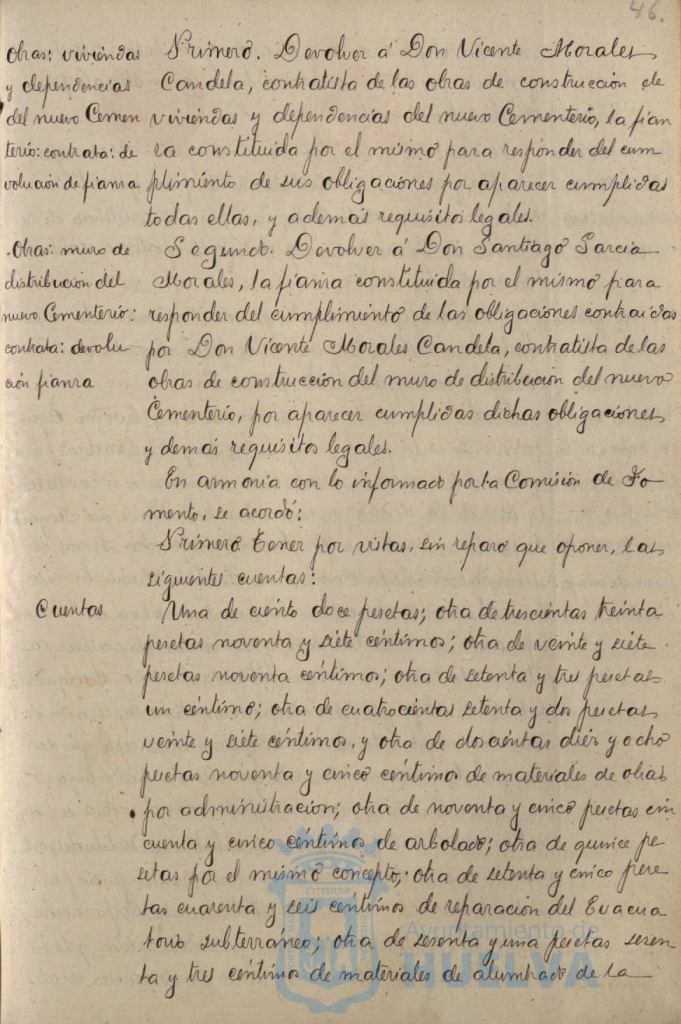 46.
Obras: viviendas
y dependencias
del nuevo Cemen
terio: contrata: de
volución de fianza
Primero. Devolver á Don Vicente Morales
Candela, contratista de las obras de construcción de
viviendas y dependencias del nuevo Cementerio, la fian
za constituida por el mismo para responder del cum
plimiento de sus obligaciones por aparecer cumplidas
todas ellas, y además requisitos legales.
Obras: muro de
distribución del
nuevo Cementerio:
contrata: devolu
ción fianza
Segundo. Devolver á Don Santiago García
Morales, la fianza constituida por el mismo para
responder del cumplimiento de las obligaciones contraidas
por Don Vicente Morales Candela, contratista de las
obras de construcción del muro de distribución del nuevo
Cementerio, por aparecer cumplidas dichas obligaciones
y demás requisitos legales.
En armonía con lo informado por la Comisión de Fo
mento, se acordó:
Primero Tener por vistas, sin reparo que oponer, las
siguientes cuentas:
Cuentas
Una de ciento doce pesetas; otra de trescientas treinta
pesetas noventa y siete céntimos; otra de veinte y siete
pesetas noventa céntimos; otra de setenta y tres pesetas
un céntimo; otra de cuatrocientas setenta y dos pesetas
veinte y siete céntimos, y otra de doscientas diez y ocho
pesetas noventa y cinco céntimos de materiales de obras
por administración; otra de noventa y cinco pesetas cin
cuenta y cinco céntimos de arbolado; otra de quince pe
setas por el mismo concepto; otra de setenta y cinco pese
tas cuarenta y seis céntimos de reparación del Evacua
torio subterráneo; otra de sesenta y una pesetas sesen
ta y tres céntimos de materiales de alumbrado de la
Ayuntamiento de
HUELVA